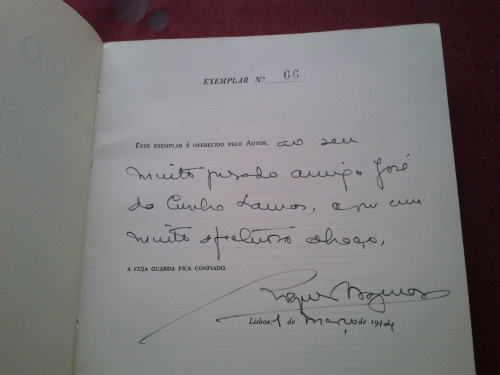 EXEMPLAR N.º 66
ESTE EXEMPLAR É OFERECIDO PELO AUTOR, ao seu
muito prezado amigo José
da Cunha Lamas, com um
muito afectuoso abraço,
A CUJA GUARDA FICA CONFIADO.
Lisboa, 1 de Março de 1944